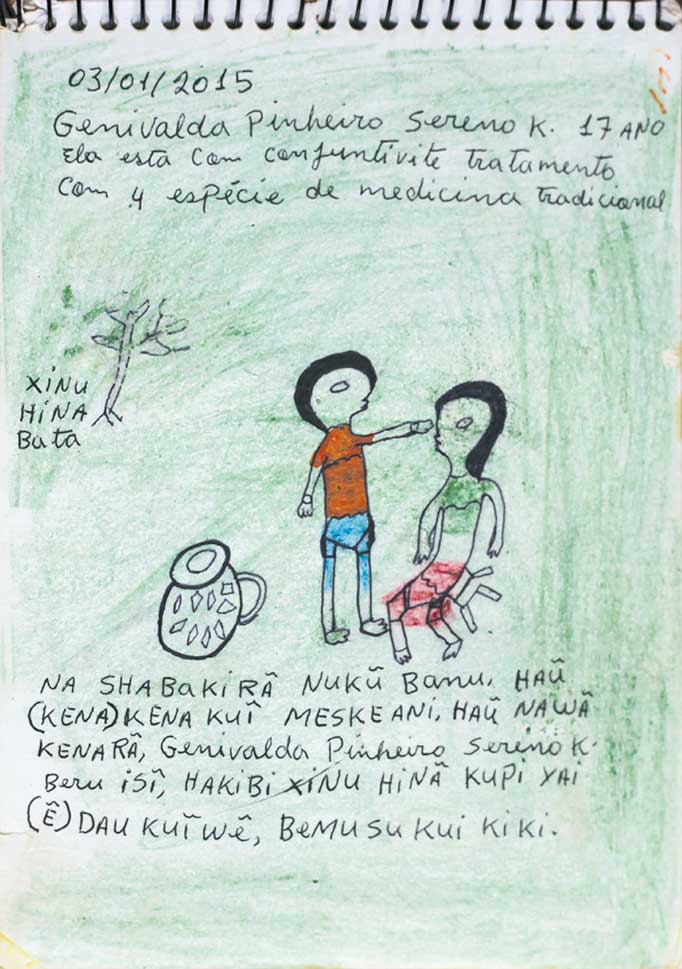 03/01/2015
Genivalda Pinheiro Sereno K. 17 ANO
Ela esta com conjuntivite tratamento
com 4 espécie de medicina tradicional
XINU
HINA
Bata
NA SHABAKI RÃ NUKŨ BANU, HAŨ
(KENA) KENA KUĨ MESKE ANI, HAŨ NAWÃ
KENARÃ, Genivalda Pinheiro Sereno K.
Beru ISĨ, HAKIBI XINU HINÃ KUPI YAI
(Ê) DAU KUĨ WÊ, BEMUSU KUI KIKI.